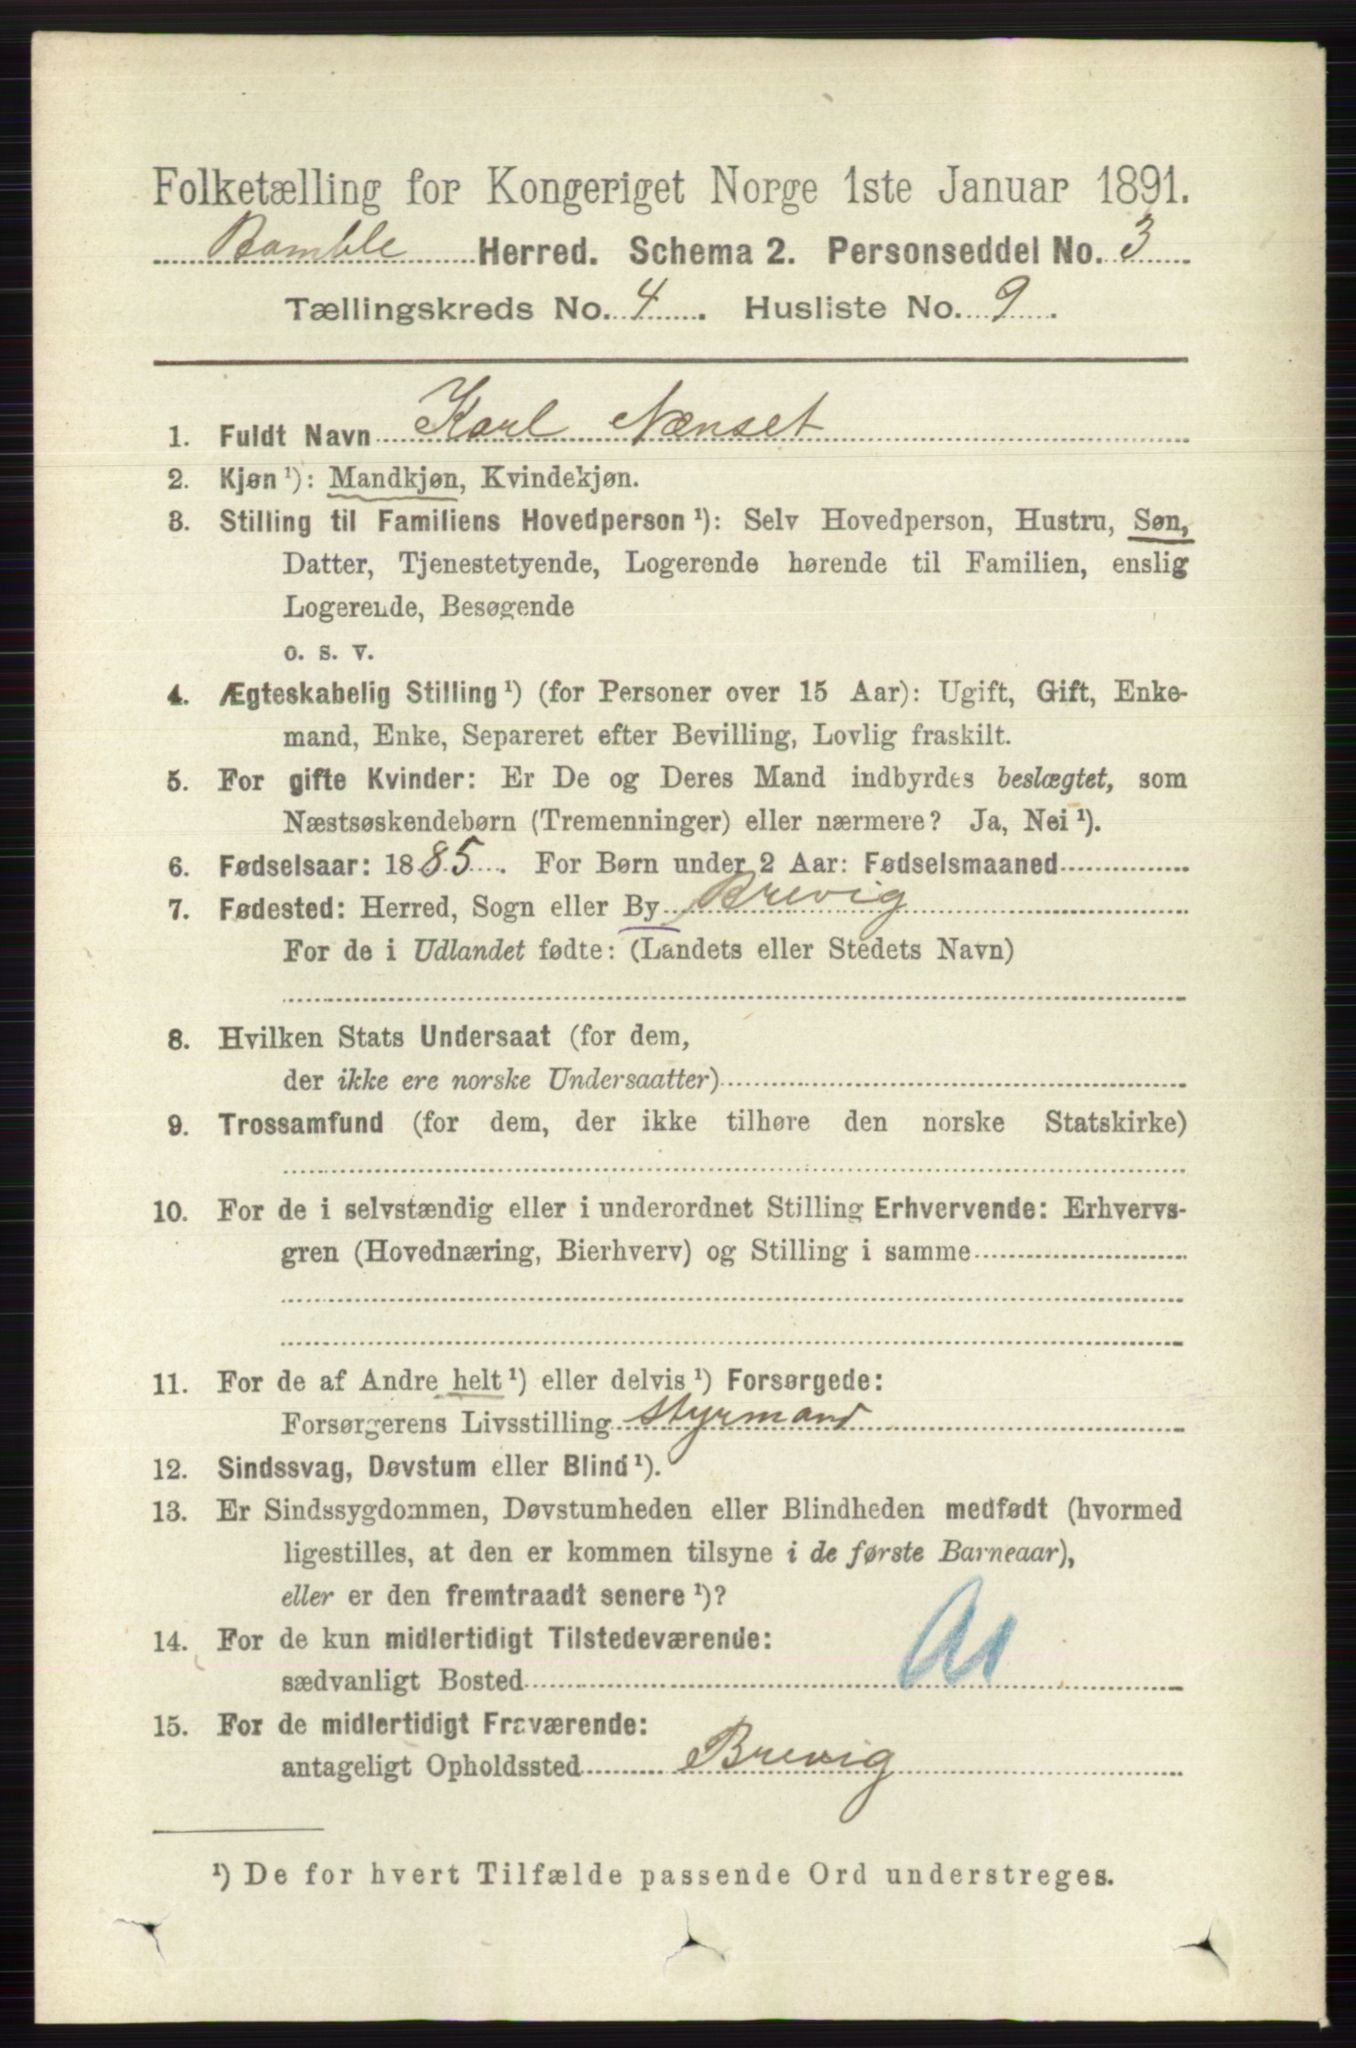 Folketælling for Kongeriget Norge 1ste Januar 1891.
Bamble Herred. Schema 2. Personseddel No. 3
Tællingskreds No. 4. Husliste No. 9.
1. Fuldt Navn Karl Nænset
2. Kjøn ¹): Mandkjøn, Kvindekjøn.
3. Stilling til Familiens Hovedperson ¹): Selv Hovedperson, Hustru, Søn,
Datter, Tjenestetyende, Logerende hørende til Familien, enslig
Logerende, Besøgende
o. s. v.
4. Ægteskabelig Stilling ¹) (for Personer over 15 Aar): Ugift, Gift, Enke-
mand, Enke, Separeret efter Bevilling, Lovlig fraskilt.
5. For gifte Kvinder: Er De og Deres Mand indbyrdes beslægtet, som
Næstsøskendebørn (Tremenninger) eller nærmere? Ja, Nei ¹).
6. Fødselsaar: 1885. For Børn under 2 Aar: Fødselsmaaned
7. Fødested: Herred, Sogn eller By Brevig
For de i Udlandet fødte: (Landets eller Stedets Navn)
8. Hvilken Stats Undersaat (for dem,
der ikke ere norske Undersaatter)
9. Trossamfund (for dem, der ikke tilhøre den norske Statskirke)
10. For de i selvstændig eller i underordnet Stilling Erhvervende: Erhvervs-
gren (Hovednæring, Bierhverv) og Stilling i samme
11. For de af Andre helt ¹) eller delvis ¹) Forsørgede:
Forsørgerens Livsstilling styrmand
12. Sindssvag, Døvstum eller Blind ¹).
13. Er Sindssygdommen, Døvstumheden eller Blindheden medfødt (hvormed
ligestilles, at den er kommen tilsyne i de første Barneaar),
eller er den fremtraadt senere ¹)?
14. For de kun midlertidigt Tilstedeværende:
sædvanligt Bosted
15. For de midlertidigt Fraværende:
antageligt Opholdssted Brevig
¹) De for hvert Tilfælde passende Ord understreges.